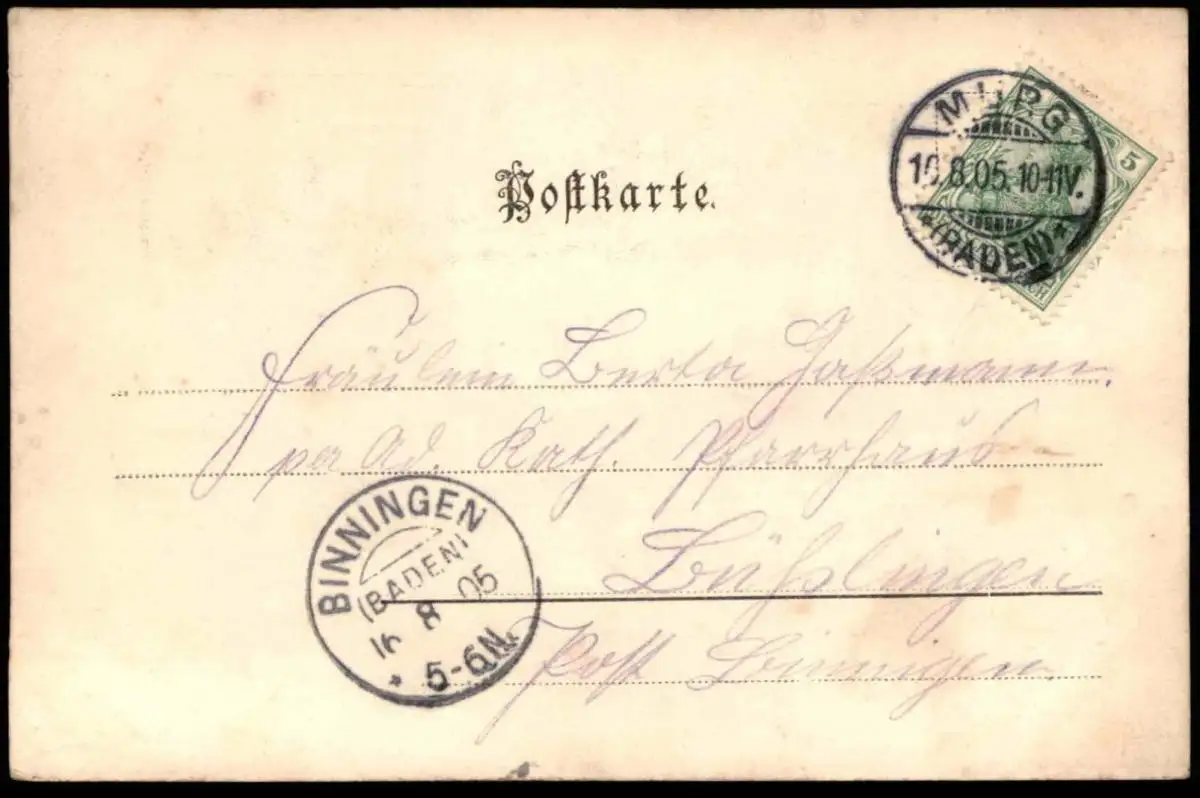 MURG
16.8.05.10-11V.
*(BADEN)*
5
Postkarte.
Fräulein Berta Gaßmann,
pr Ad. Kath. Pfarrhaus
Büßlingen
Post Binningen.
BINNINGEN
(BADEN)
16 8 05
* 5-6N.